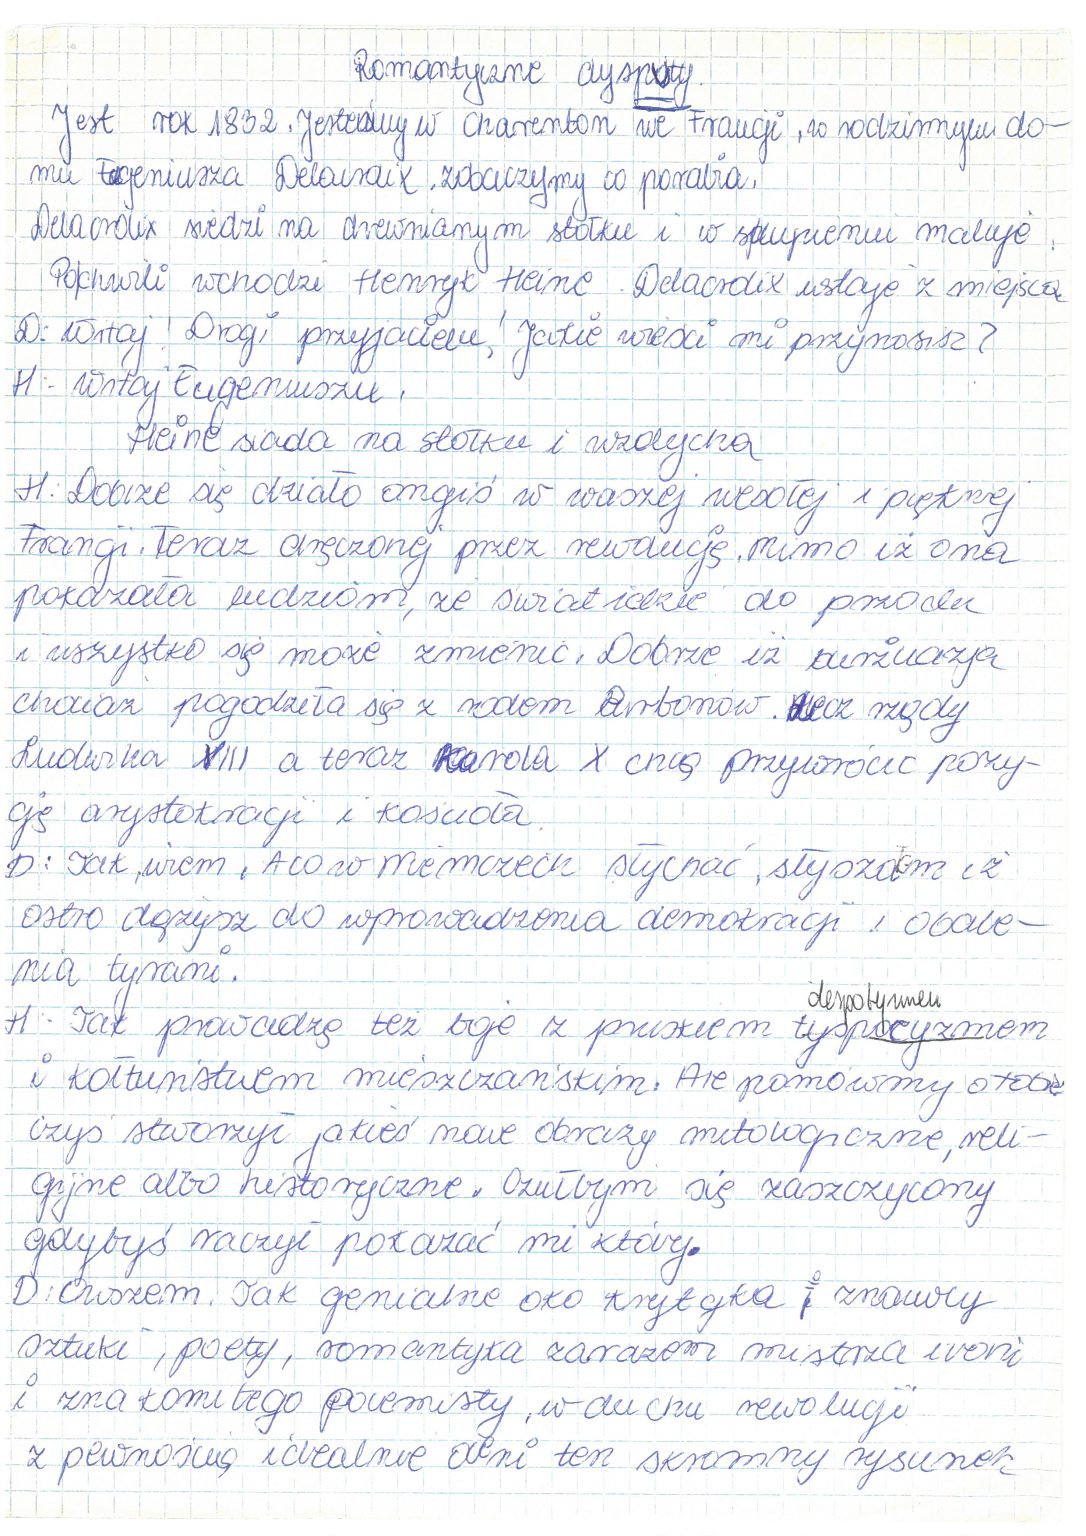 Romantyczne dysputy.
Jest rok 1832. Jesteśmy w Charenton we Francji, w rodzinnym do-
mu Eugeniusza Delacroix, zobaczymy co porabia.
Delacroix siedzi na drewnianym stołku i w skupieniu maluje.
Pochwili wchodzi Henryk Heine. Delacroix wstaje z miejsca
D: Witaj! Drogi przyjacielu! Jakie wieści mi przynosisz?
H:- Witaj Eugeniuszu.
Heine siada na stołku i wzdycha
H: Dobrze się działo ongiś w waszej wesołej i pięknej
Frangi. Teraz dręczonej przez rewolucję. Mimo iż ona
pokazała ludziom, że świat idzie do przodu
i wszystko się może zmienić. Dobrze iż burżuazja
chociaż pogodziła się z rodem Burbonów. Lecz rządy
Ludwika XVIII a teraz Karola X chcą przywrócić pozy-
cję arystokracji i kościoła.
D: Tak, wiem. A co w Niemczech słychać, słyszałem iż
ostro dążysz do wprowadzenia demokracji i obale-
nia tyrani.
despotyzmem
H:- Tak prowadzę też boje z pruskiem tyspocyzmem
i kołtuństwem mieszczańskim. Ale pomówmy o tobie
czyś stworzył jakieś nowe obrazy mitologiczne, reli-
gijne albo historyczne. Czułbym się zaszczycony
gdybyś raczył pokazać mi który.
D: Owszem. Tak genialne oko krytyka i znawcy
sztuki, poety, romantyka zarazem mistrza ironi
i znakomitego polemisty, w duchu rewolucji
z pewnością idealnie oceni ten skromny rysunek